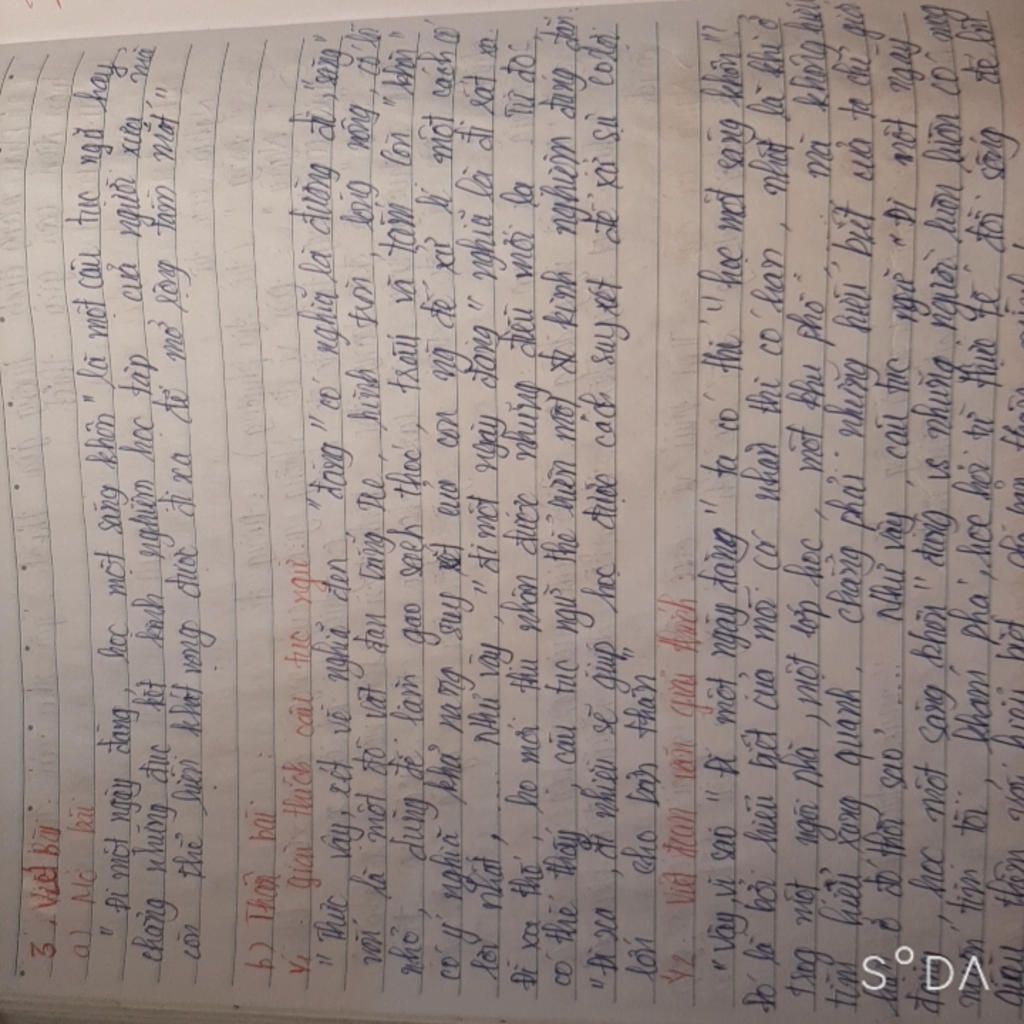 3. Viết bài
a) Mở bài
"Đi một ngày đàng, học một sàng khôn" là một câu tục ngữ hay
chẳng những đúc kết kinh nghiệm học tập của người xưa mà
còn thể hiện khát vọng được đi xa để mở rộng tầm mắt"
b) Thân bài
V1. giải thích câu tục ngữ
"Thực vậy, xét về nghĩa đen, "đàng" có nghĩa là đường đi, "sàng"
nói là một đồ vật đan bằng tre, hình tròn, lòng nông, có lỗ
nhỏ, dùng để làm gạo sạch thóc, trấu và tấm còn "khôn"
có ý nghĩa khả năng suy xét của con ng để xử lí một cách có
lợi nhất, ........ Như vậy, "đi một ngày đàng" nghĩa là đi sát ra
đi xa thế, ho mới thu nhận được những điều mới lạ. Từ đó
có thể thấy, câu tục ngữ thể hiện một kinh nghiệm đúng đắn:
"đi xa, đi nhiều sẽ giúp học được cách suy xét để xử sự có lợi
lối cho bản thân"
V2. Viết đoạn văn giải thích
"Vậy vì sao "đi một ngày đàng" ta có thể "học một sàng khôn"?
Đó là bởi hiểu biết của mỗi cá nhân thì có hạn, nhất là khi ở
trong một ngôi nhà, một lớp học, một khu phố mà không
tìm hiểu xung quanh, chẳng phải những hiểu biết của ta chỉ giới
hạn ở đó thôi sao? ........ Như vậy, câu tục ngữ "đi một ngày
đàng, học một sàng khôn" đúng vs những người luôn luôn có mong
muốn tìm tòi, khám phá, học hỏi từ thực tế đời sống để
thân với hiểu biết